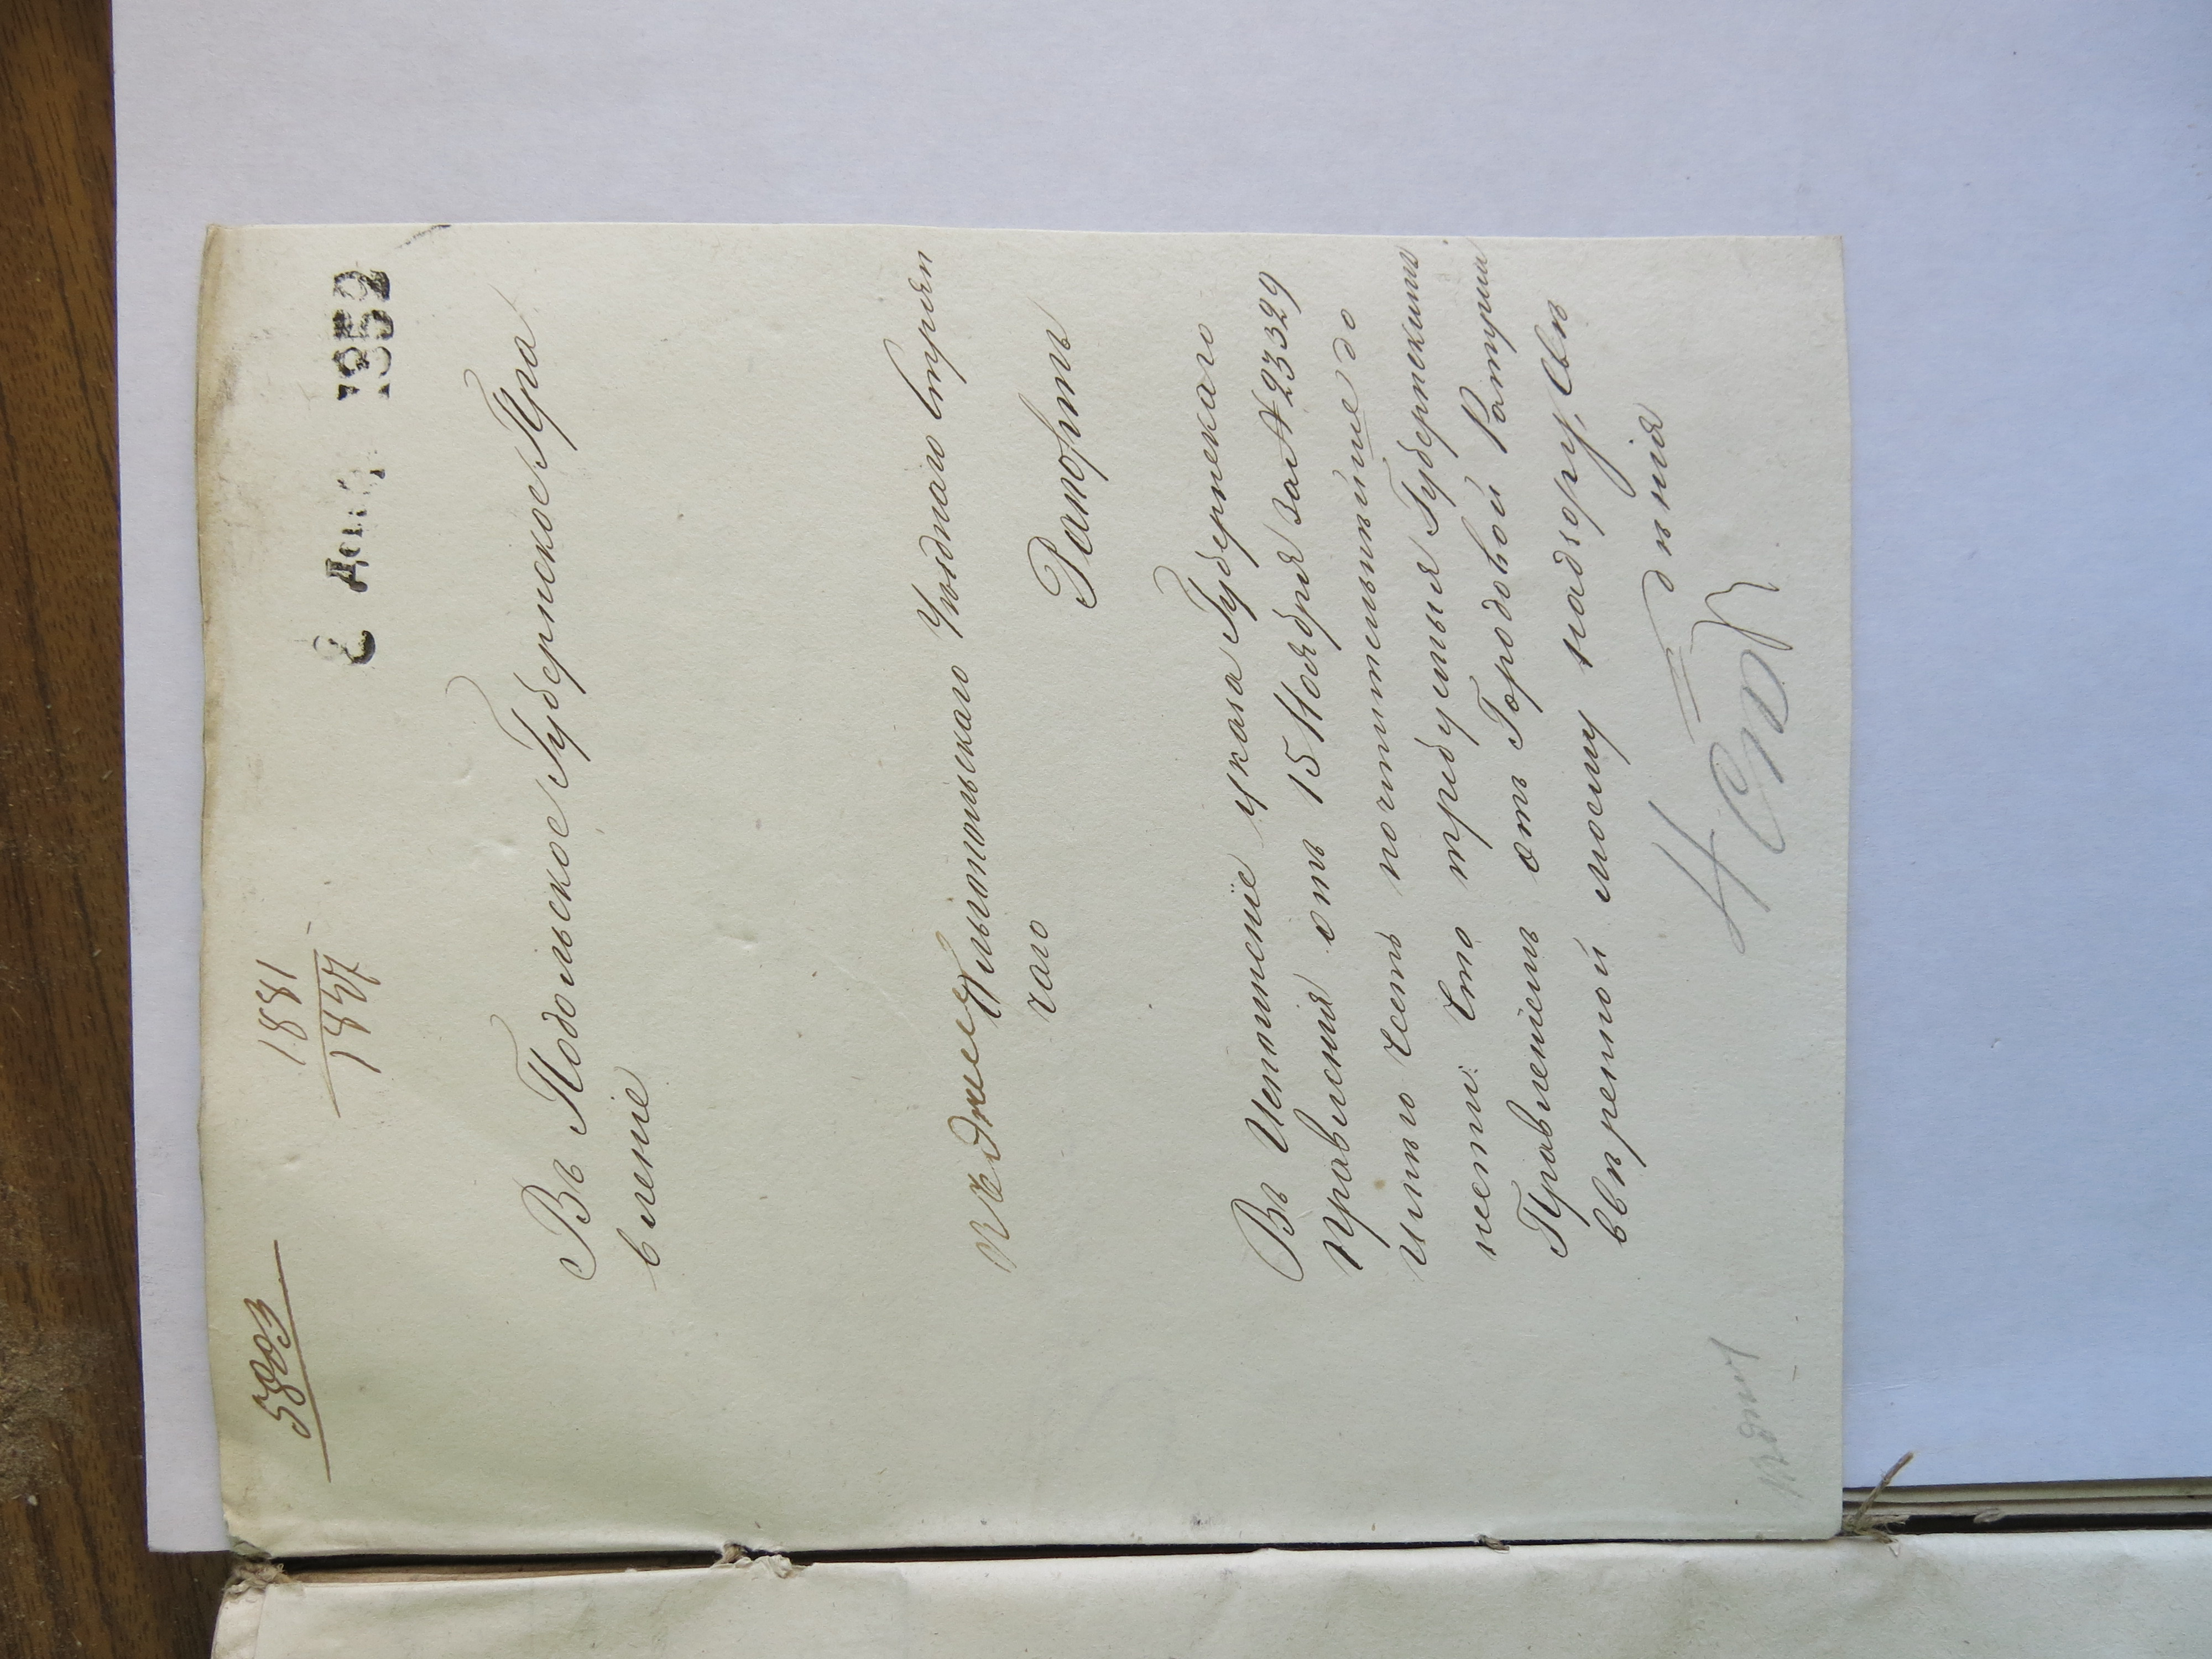 5803
1881
1547
2 Дек 1852
Въ Подольское Губернское Пра
вленіе
Ольгопольскаго Уѣзднаго Стряп
чаго
Рапортъ
Въ Исполненіе указа Губернскаго
Правленія отъ 15 Ноября за № 23329
имѣю честь почтительнѣйше до
нести: Что требуемыя Губернскимъ
Правленіемъ отъ Городовой Ратуши
ввѣренной моему надзору, Свѣ
дѣнія